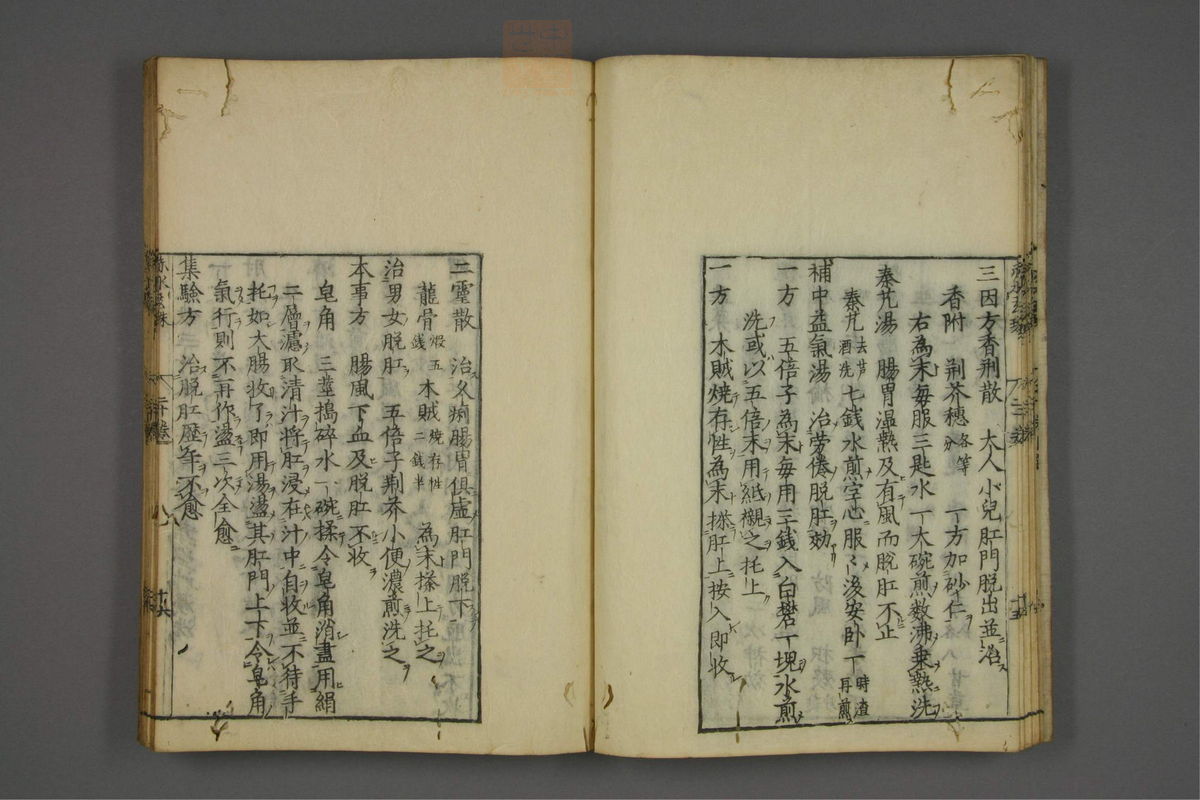 三因方香荆散　大人小兒肛門脱出並治
香附　荆芥穂各等分　一方加砂仁
右為末毎服三匙水一大碗煎数沸乗熱洗
秦艽湯　腸胃温熱及有風而脱肛不止
秦艽去芦酒洗七錢水煎空心服〻後安卧一時渣再煎
補中益氣湯　治労倦脱肛効
一方　五倍子為末毎用三銭入白礬一塊水煎
洗或以五倍末用紙襯之托上
一方　木賊焼存性為末搽肛上按入即收
二霊散　治久痢腸胃俱虚肛門脱下
龍骨煅五銭木賊燒存性二銭半　為末搽上托之
治男女脱肛　五倍子荆芥小便濃煎洗之
本事方　腸風下血及脱肛不收
皂角　三莖搗碎水一碗揉令皂角消盡用絹
二層濾取清汁将肛浸在汁中自收並不待手
托如大腸收了即用湯盪其肛門上下令皂角
氣行則不再作盪三次全愈
集験方　治脱肛歴年不愈